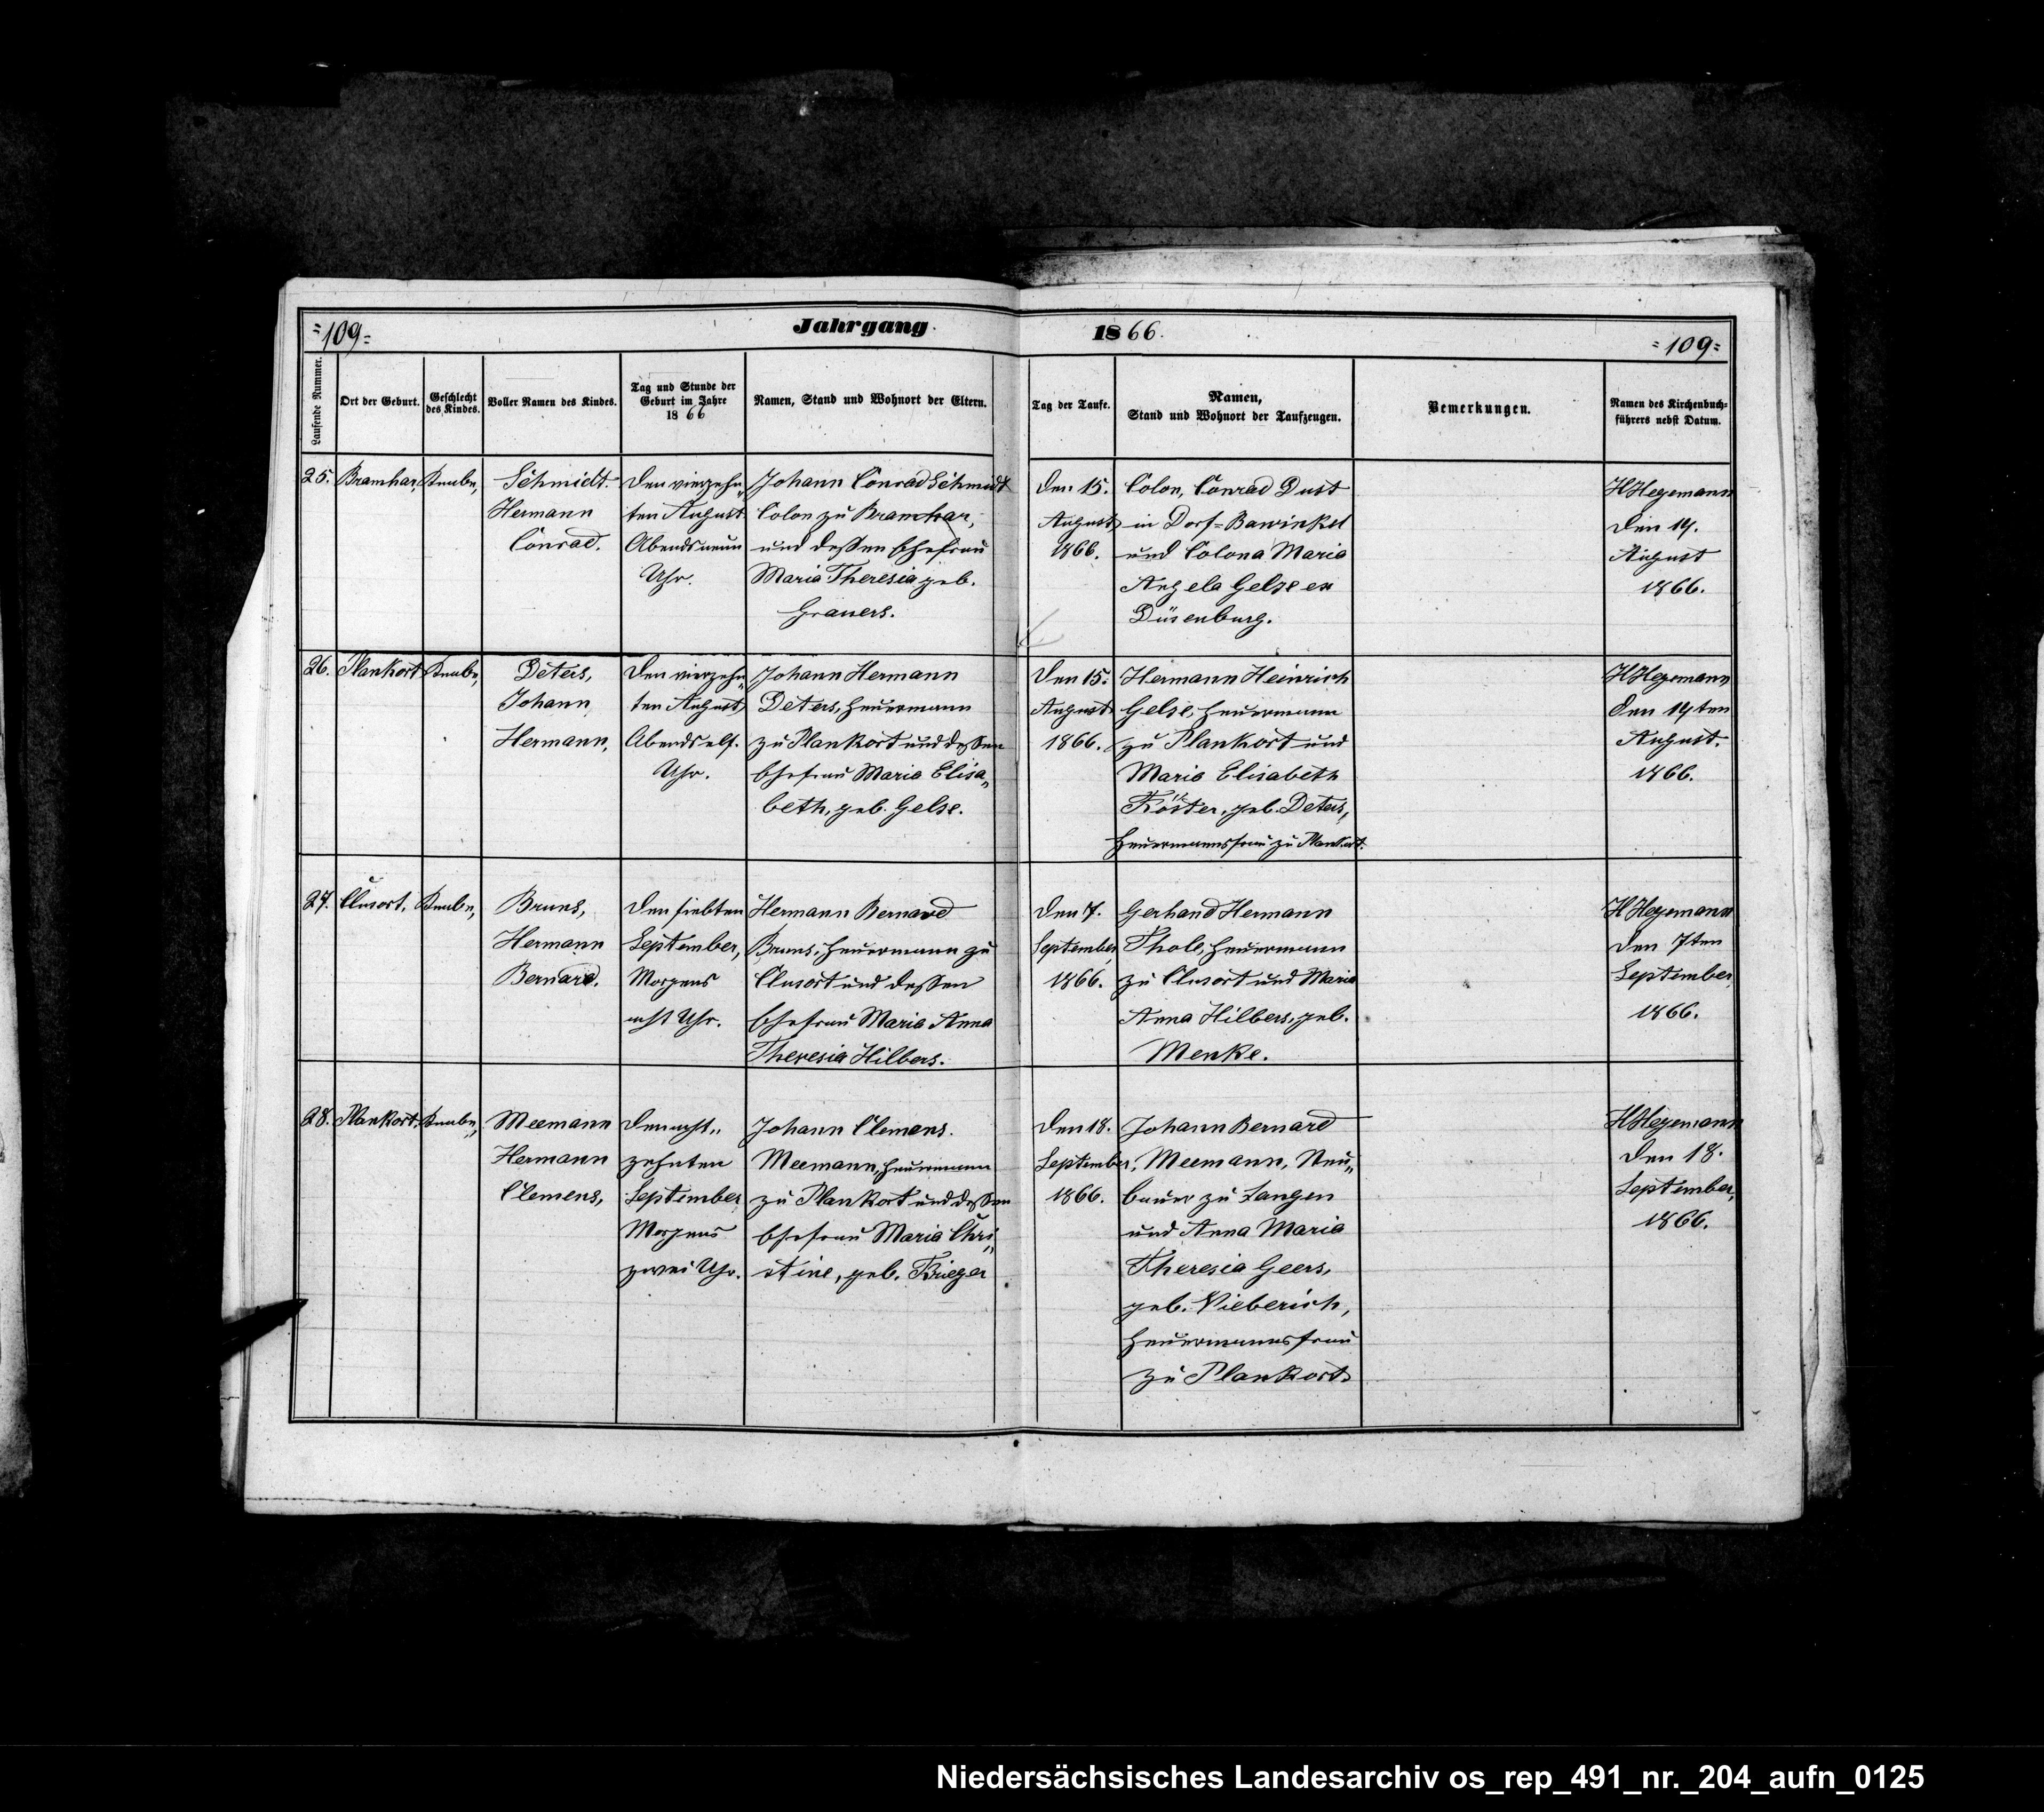 =109=
Jahrgang
1866.
=109=
Laufende Nummer.
Ort der Geburt.
Geschlecht
des Kindes.
Voller Namen des Kindes.
Tag und Stunde der
Geburt im Jahre
1866
Namen, Stand und Wohnort der Eltern.
Tag der Taufe.
Namen,
Stand und Wohnort der Taufzeugen.
Bemerkungen.
Namen des Kirchenbuch-
führers nebst Datum.
25.
Bramhar,
Knabe,
Schmidt.
Hermann
Conrad.
Den vierzehn„
ten August
Abends neun
Uhr.
Johann Conrad Schmidt
Colon zu Bramhar,
und dessen Ehefrau
Maria Theresia geb.
Den 15.
August
1866.
Colon, Conrad Dust
in Dorf=Bawinkel
und Colona Maria
Angela Gelze ex
Düsenburg.
HHegemann
Den 14.
August
1866.
26.
Plankort
Knabe,
Deters,
Johann
Hermann,
Den vierzehn„
ten August
Abends elf.
Uhr.
Johann Hermann
Deters, Heuermann
zu Plankort und dessen
Ehefrau Maria Elisa„
beth, geb. Gelze.
Den 15.
August
1866.
Hermann Heinrich
Gelze, Heuermann
zu Plankort und
Maria Elisabeth
Köster, geb. Deters,
Heuermannsfrau zu Plankort.
HHegemann
Den 14ten
August.
1866.
27.
Clusort,
Knabe,
Bruns,
Hermann
Bernard.
Den siebten
September,
Morgens
acht Uhr.
Hermann Bernard
Bruns, Heuermann zu
Clusort und dessen
Ehefrau Maria Anna
Theresia Hilbers.
Den 7.
September
1866.
Gerhard Hermann
Thole, Heuermann
zu Clusort und Maria
Anna Hilbers, geb.
Menke.
HHegemann
Den 7ten
September
1866.
28.
Plankort.
Knabe,
Meemann
Hermann
Clemens,
Den acht„
zehnten
September
Morgens
zwei Uhr.
Johann Clemens.
Meemann, Heuermann
zu Plankort und dessen
Ehefrau Maria Chri„
stine, geb.
Den 18.
September,
1866.
Johann Bernard
Meemann, Neu„
bauer zu Langen
und Anna Maria
Theresia Geers,
geb. Vieberich,
Heuermannsfrau
zu Plankort.
HHegemann
Den 18.
September,
1866.
Niedersächsisches Landesarchiv os_rep_491_nr._204_aufn_0125